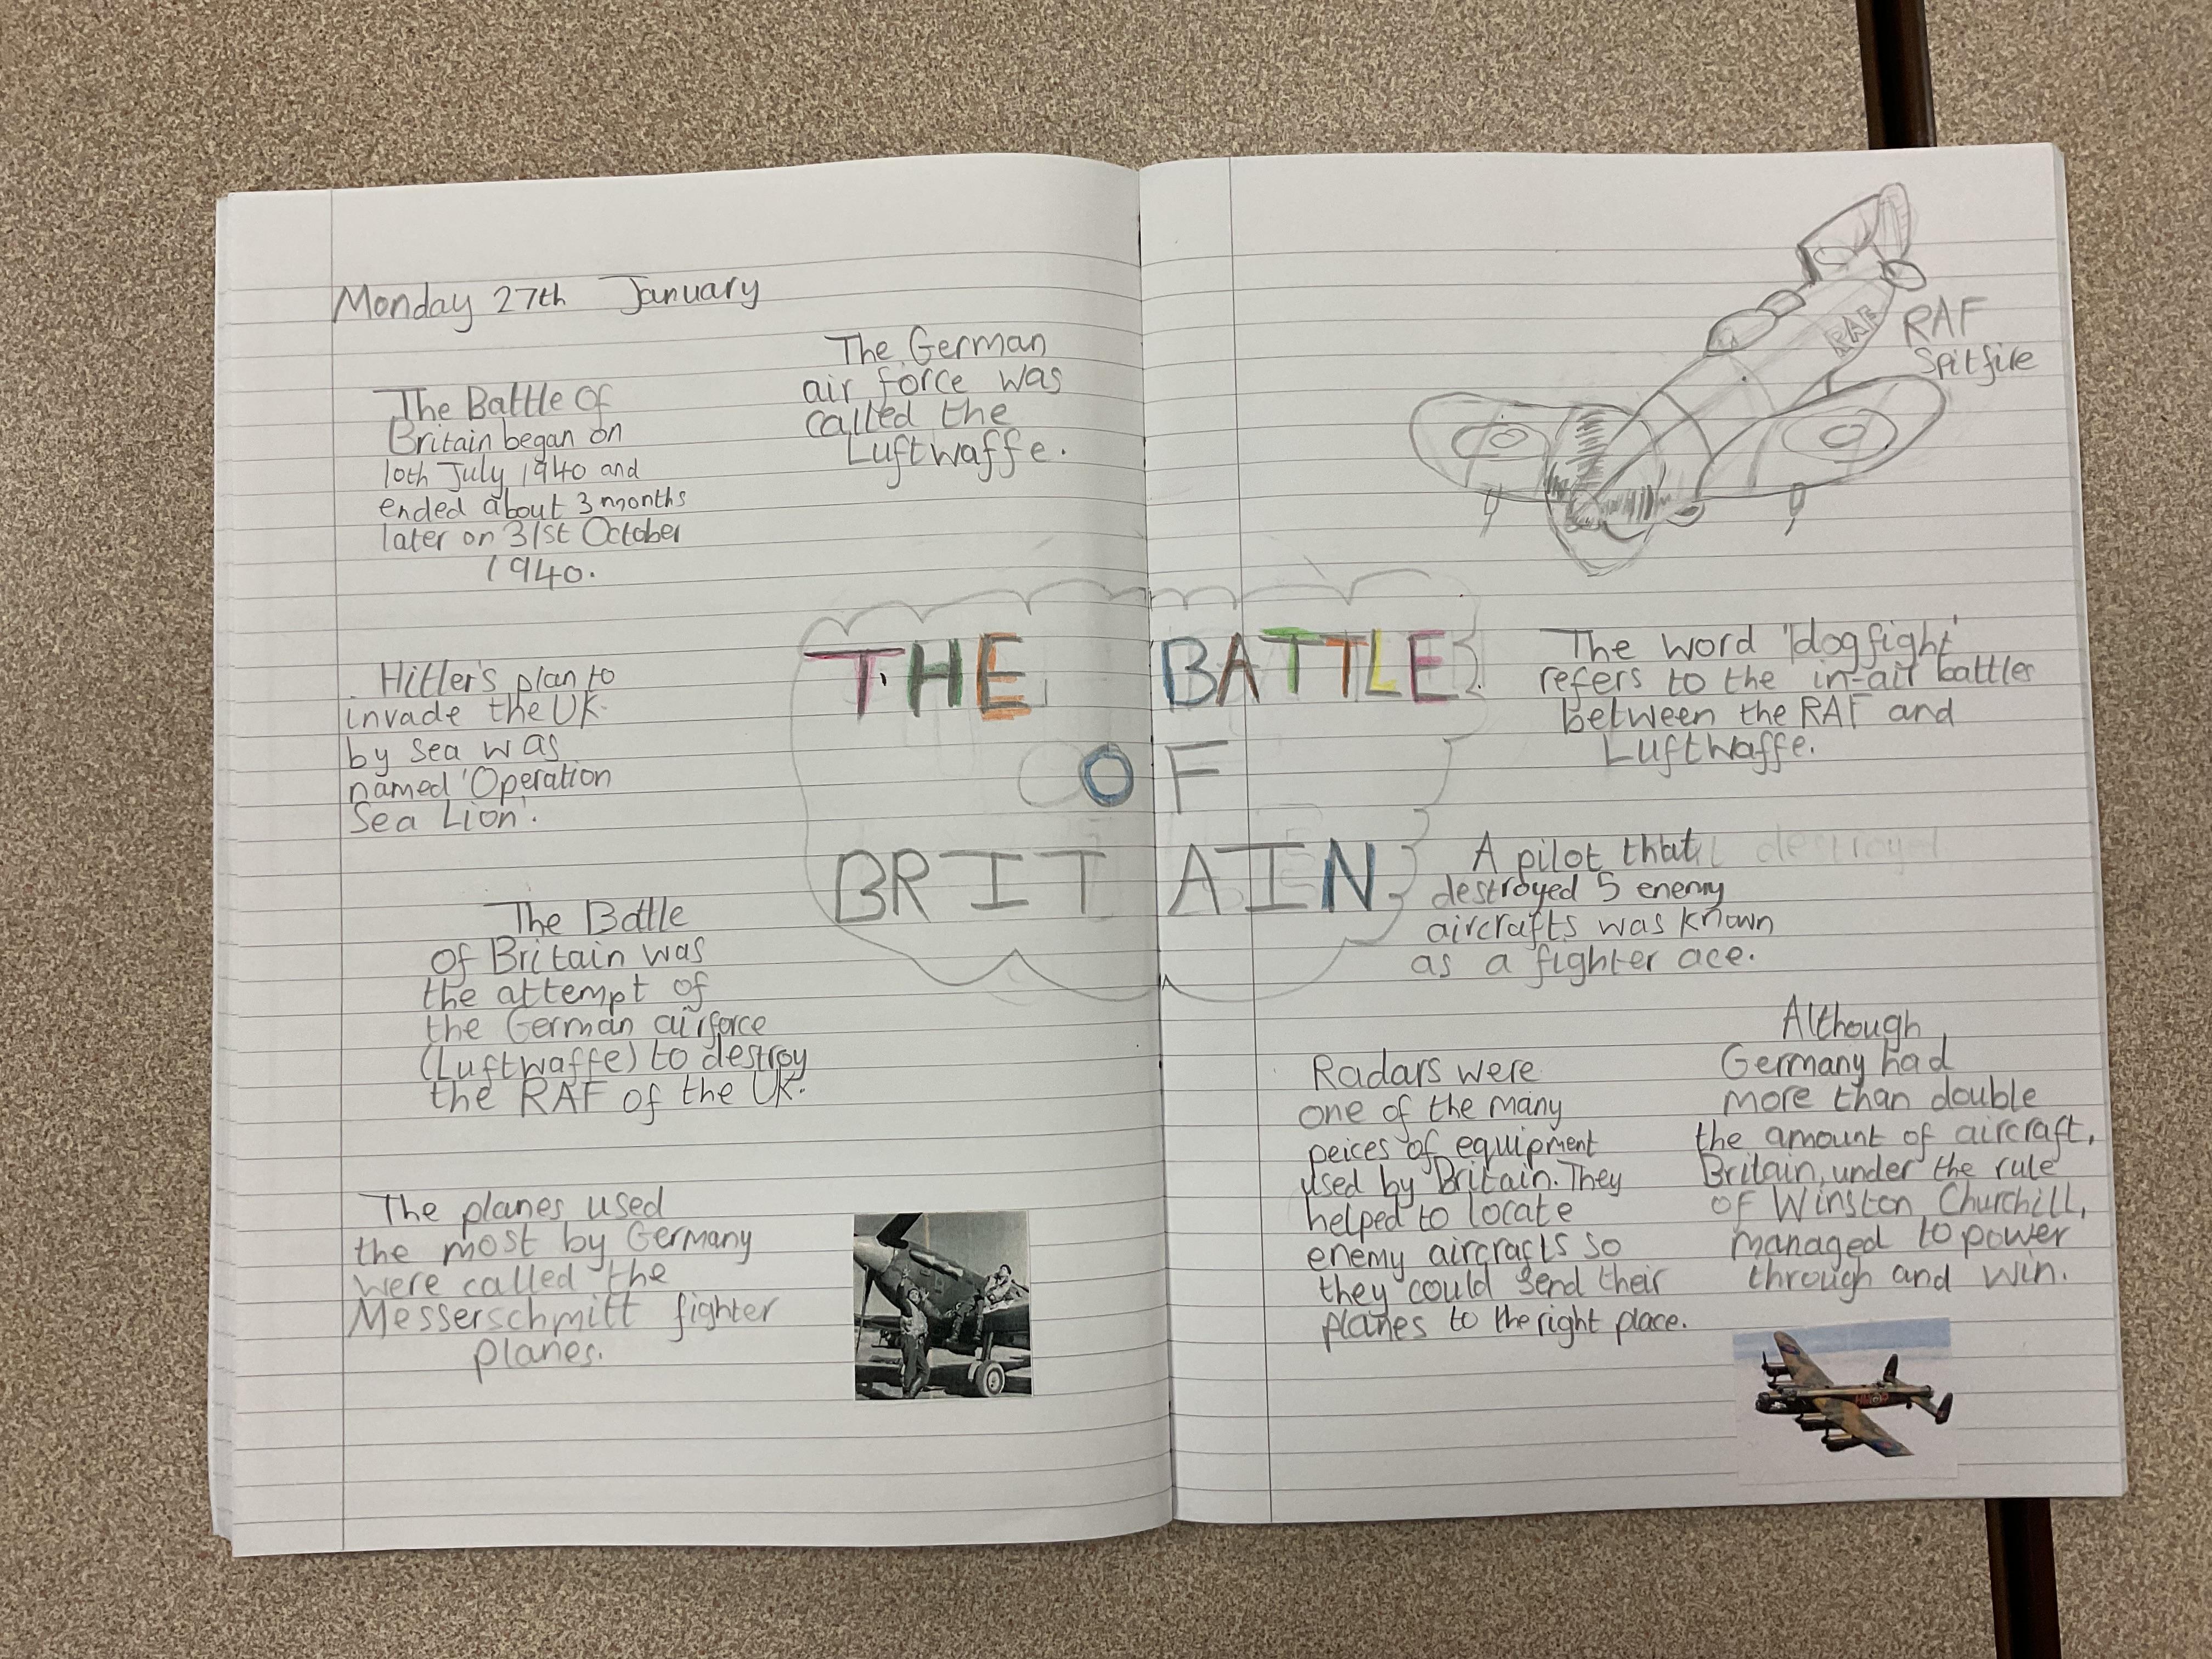 Monday 27th January
The Battle Of
Britain began on
10th July 1940 and
ended about 3 months
later on 31st October
1940.
The German
air force was
called the
Luftwaffe.
Hitler's plan to
invade the UK
by sea was
named 'Operation
Sea Lion'.
The Battle
of Britain was
the attempt of
the German airforce
(Luftwaffe) to destroy
the RAF of the UK.
The planes used
the most by Germany
were called the
Messerschmitt fighter
planes.
THE BATTLE
OF
BRITAIN
RAF
RAF
Spitfire
The word 'dogfight'
refers to the in-air battles
between the RAF and
Luftwaffe.
A pilot that
destroyed 5 enemy
aircrafts was known
as a fighter ace.
Radars were
one of the many
peices of equipment
used by Britain. They
helped to locate
enemy aircrafts so
they could send their
planes to the right place.
Although
Germany had
more than double
the amount of aircraft,
Britain, under the rule
of Winston Churchill,
managed to power
through and win.